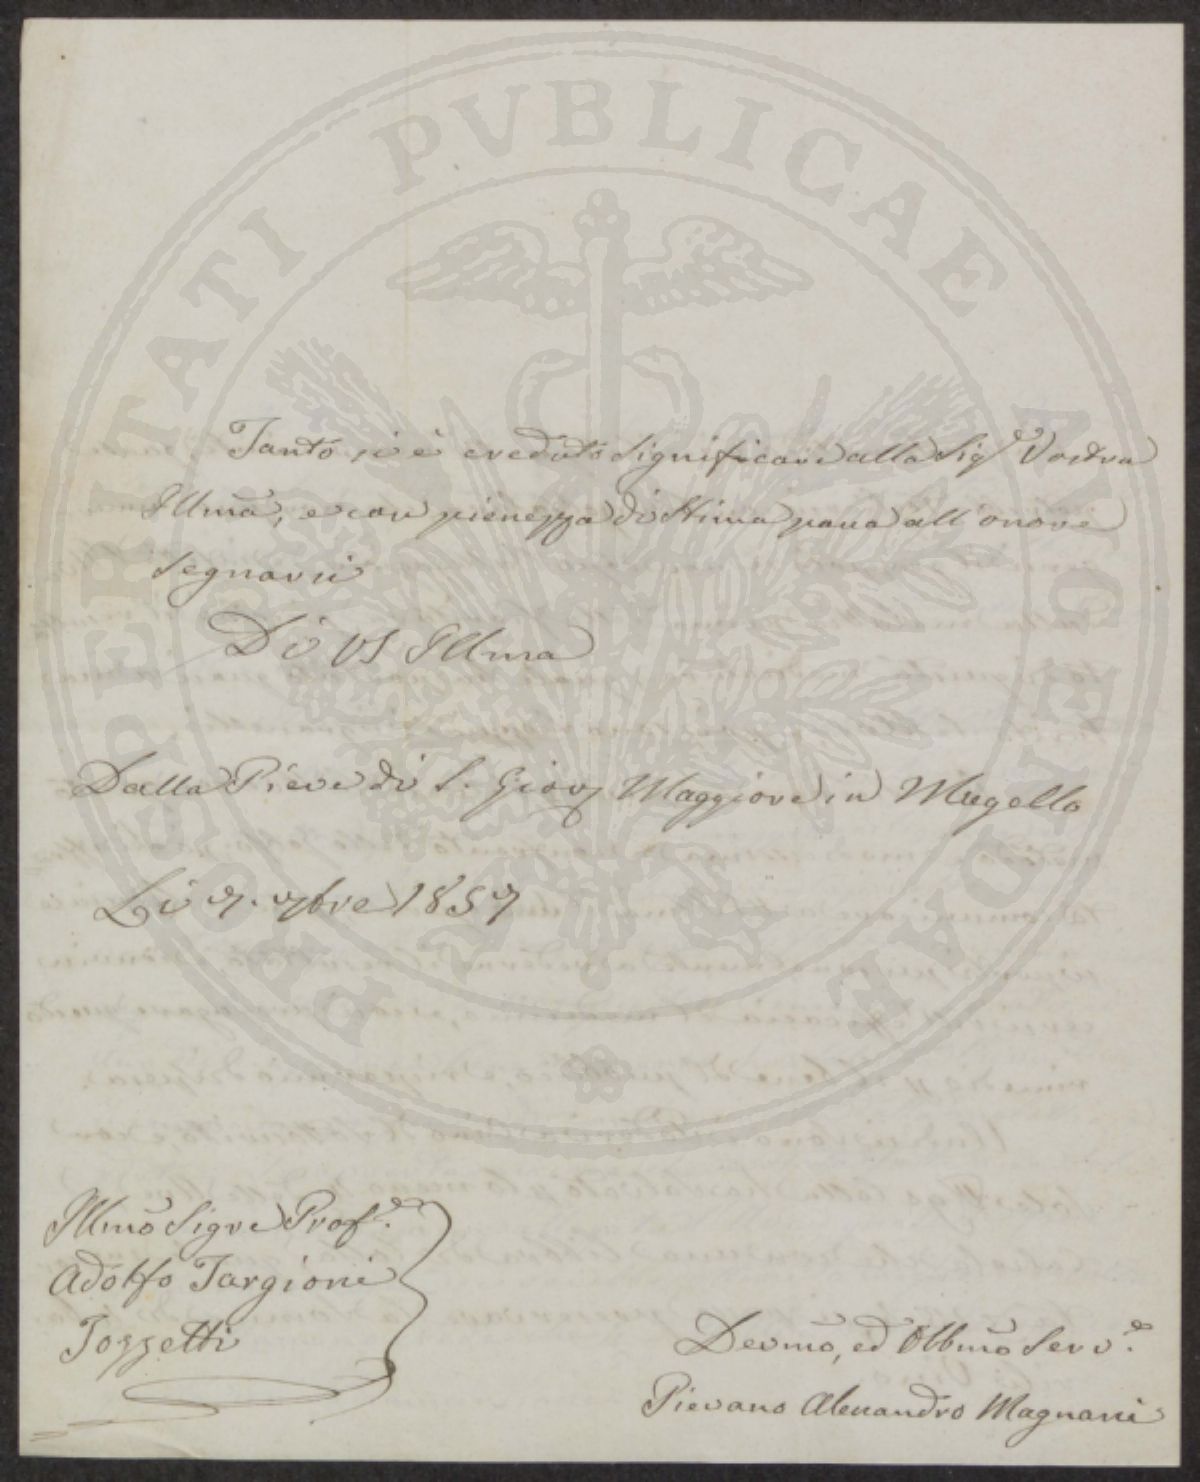 PROSPERITATI PVBLICAE AVGENDAE
Tanto si è creduto significare alla Sigᵃ Vostra
Illma, e con pienezza di stima passa all'onore
segnarsi
Di VS Illma
Dalla Pieve di S. Giovⁱ Maggiore in Mugello
Li 7. 7bre 1857
Illmo Sigre Profᵉ.
Adolfo Targioni
Tozzetti
Devmo, ed Obbmo Servᵉ.
Pievano Alessandro Magnani